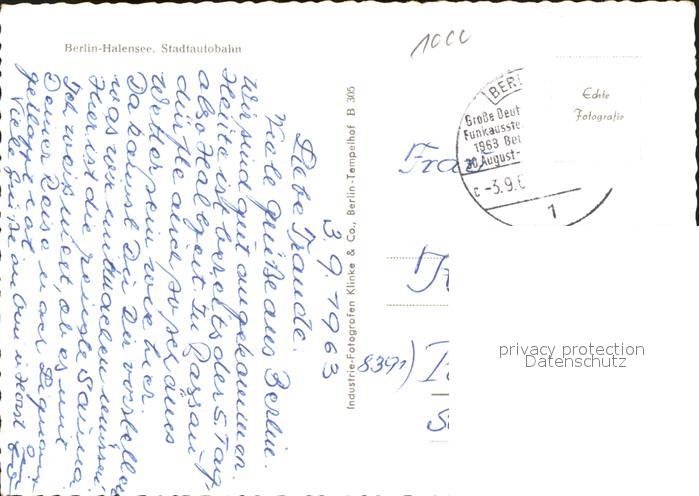 Berlin-Halensee, Stadtautobahn
1000
3.9.1963
Liebe Traude.
Viele Grüße aus Berlin.
Wir sind gut angekommen.
Heute ist bereits der 5. Tag,
also Halbzeit. In Passau
dürfte auch so schönes
Wetter sein wie hier.
Da kannst Du Dir vorstellen
was wir mitmachen müssen,
hier ist die reinste Sauna.
Ich weiß nicht, ob es mit
Deiner Reise nach
geklappt hat.
Viele Grüße an
Industrie-Fotografen Klinke & Co., Berlin-Tempelhof B 305
BERL
Große Deut
Funkausste
1963 Ber
30. August-
c -3.9.6
1
Echte
Fotografie
Frau
(8391)
privacy protection
Datenschutz